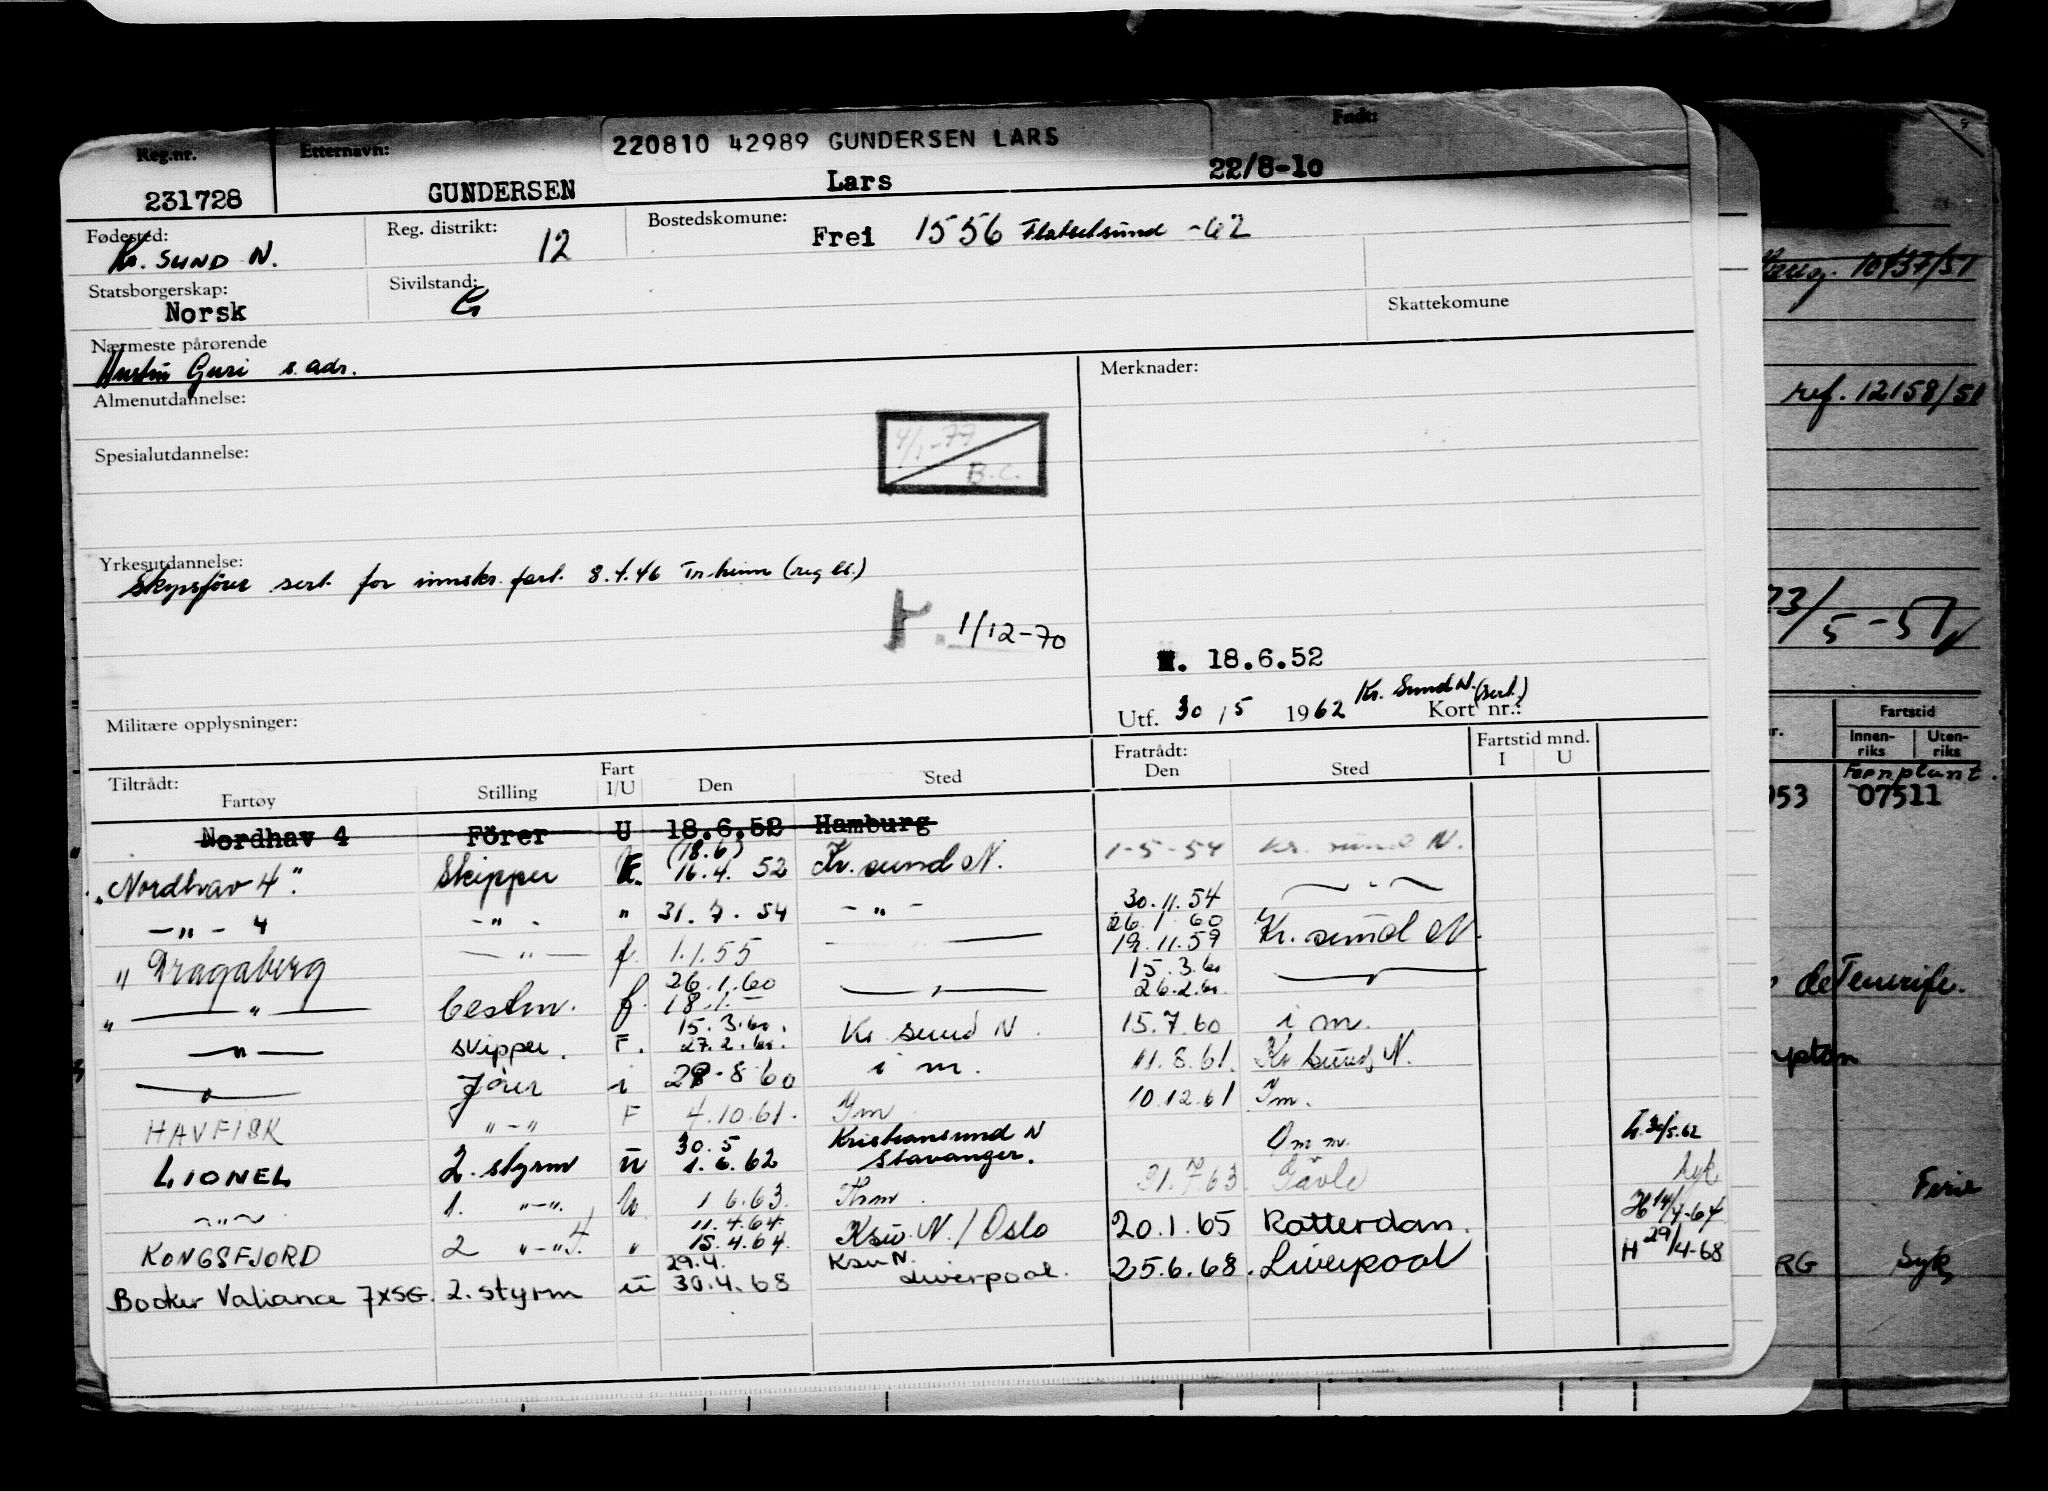 220810 42989 GUNDERSEN LARS
Reg.nr. Etternavn: Født:
231728 GUNDERSEN Lars 22/8-10
Fødested: Reg. distrikt: Bostedskomune:
Kr. SUND N. 12 Frei 1556 Flatsetsund -62
Statsborgerskap: Sivilstand: Skattekomune
Norsk G
Nærmeste pårørende
Hustru Guri s. adr. Merknader:
Almenutdannelse:
4/1-77
B.C.
Spesialutdannelse:
Yrkesutdannelse:
Skipsfører sert. for innskr. fart. 8.4.46 Tr.heim (reg bl.)
1/12-70
18.6.52
Militære opplysninger: Utf. 30/5 1962 Kr. Sund N. (sert.) Kort nr.:
Tiltrådt: Fart Fratrådt: Fartstid mnd.
Fartøy Stilling I/U Den Sted Den Sted I U
Nordhav 4 Förer U 18.6.52 Hamburg
(18.6)
"Nordhav 4" Skipper 16.4. 52 Kr. sund N. 1-5-54 Kr. sund N.
-"- 4 -"- " 31.7.54 -"- 30.11.54 -"-
26.1.60
" Dragaberg -"- f. 1.1.55 19.11.59 Kr. sund N.
26.1.60 15.3.60
" -"- bestm. f. 18.1.- -"- 26.2.60 -"-
15.3.60.
-"- skipper. F. 27.2.60. Kr sund N. 15.7.60 i m.
-"- fører i 29-8 60 i m. 11.8.61. Kr sund N.
HAVFISK "-" F 4.10.61. Im 10.12.61 Im.
30.5 Kristiansund N
LIONEL 2. styrm u 1.6.62 Stavanger. Om m. 30/5.62
-"- 1. "-". u. 1 6.63. 31. 63. Gävle syk
11.4.64. H 14/4-64
KONGSFJORD 2 "-" " 15.4.64. Ksu. N. / Oslo 20.1.65 Rotterdam.
29.4. Ksu N. H 29/4-68
Booker Valiance 7XSG. 2. styrm u 30.4.68 Liverpool. 25.6.68. Liverpool
10137/51
ref. 12158/51
73/5-51
Fartstid
Innen-riks Uten-riks
Fernplant.
953 07511
de Tenerife.
Ferie
RG syk